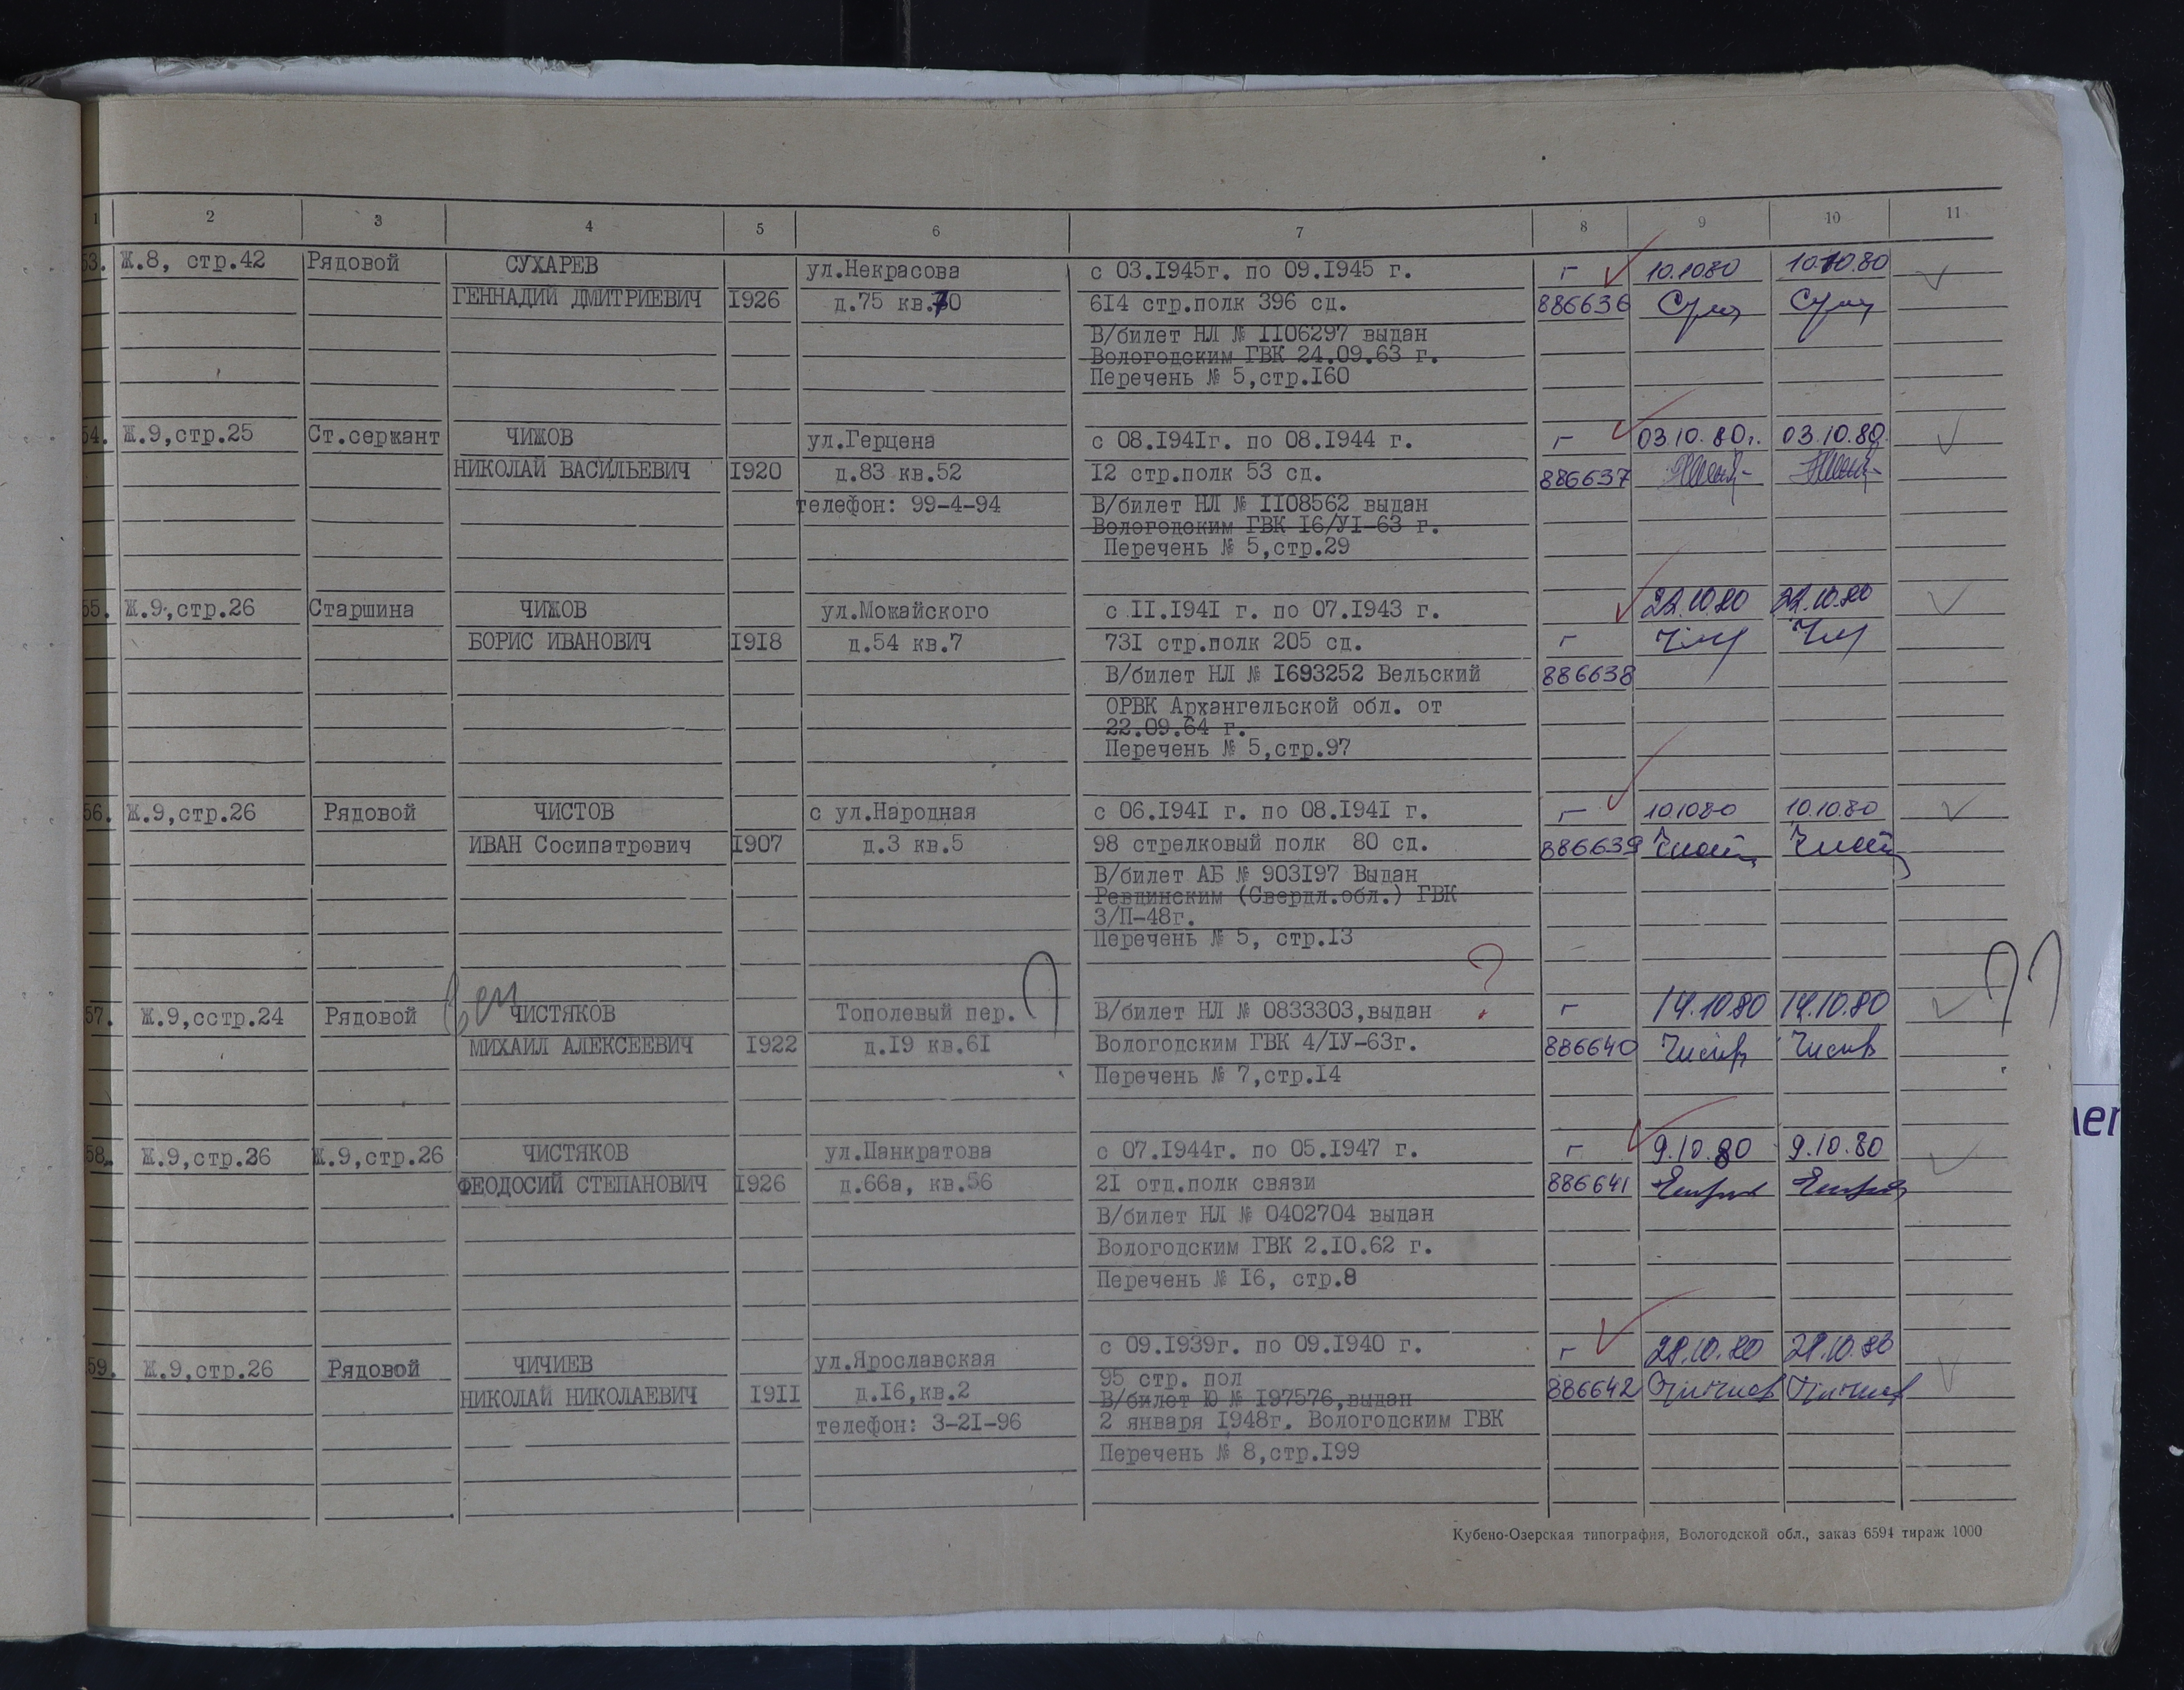 1 2 3 4 5 6 7 8 9 10 11
53. Ж.8, стр.42 Рядовой СУХАРЕВ ул.Некрасова с 03.1945г. по 09.1945 г. г 10.10 80 10.10.80
ГЕННАДИЙ ДМИТРИЕВИЧ 1926 д.75 кв.70 614 стр.полк 396 сд. 886636
В/билет НЛ № 1106297 выдан
Вологодским ГВК 24.09.63 г.
Перечень № 5,стр.160
54. Ж.9,стр.25 Ст.сержант ЧИЖОВ ул.Герцена с 08.1941г. по 08.1944 г. г 03.10.80г. 03.10.80.
НИКОЛАЙ ВАСИЛЬЕВИЧ 1920 д.83 кв.52 12 стр.полк 53 сд. 886637
телефон: 99-4-94 В/билет НЛ № 1108562 выдан
Вологодским ГВК 16/УІ-63 г.
Перечень № 5,стр.29
55. Ж.9,стр.26 Старшина ЧИЖОВ ул.Можайского с 11.1941 г. по 07.1943 г. 22.10 80 22.10.80
БОРИС ИВАНОВИЧ 1918 д.54 кв.7 731 стр.полк 205 сд. г
В/билет НЛ № 1693252 Вельский 886638
ОРВК Архангельской обл. от
22.09.64 г.
Перечень № 5,стр.97
56. Ж.9,стр.26 Рядовой ЧИСТОВ с ул.Народная с 06.1941 г. по 08.1941 г. г 10.10 80 10.10.80
ИВАН Сосипатрович 1907 д.3 кв.5 98 стрелковый полк 80 сд. 886639
В/билет АБ № 903197 Выдан
Ревдинским (Свердл.обл.) ГВК
3/П-48г.
Перечень № 5, стр.13
57. Ж.9,сстр.24 Рядовой ЧИСТЯКОВ Тополевый пер. В/билет НЛ № 0833303,выдан ? г 14.10 80 14.10.80 ??
МИХАИЛ АЛЕКСЕЕВИЧ 1922 д.19 кв.61 Вологодским ГВК 4/ІУ-63г. 886640
Перечень № 7,стр.14
58. Ж.9,стр.26 Ж.9,стр.26 ЧИСТЯКОВ ул.Панкратова с 07.1944г. по 05.1947 г. г 9.10.80 9.10.80
ФЕОДОСИЙ СТЕПАНОВИЧ 1926 д.66а, кв.56 21 отд.полк связи 886641
В/билет НЛ № 0402704 выдан
Вологодским ГВК 2.10.62 г.
Перечень № 16, стр.8
59. Ж.9,стр.26 Рядовой ЧИЧИЕВ ул.Ярославская с 09.1939г. по 09.1940 г. г 28.10.80 28.10.80
НИКОЛАЙ НИКОЛАЕВИЧ 1911 д.16,кв.2 95 стр. пол 886642
В/билет Ю № 197576,выдан
телефон: 3-21-96 2 января 1948г. Вологодским ГВК
Перечень № 8,стр.199
Кубено-Озерская типография, Вологодской обл., заказ 6594 тираж 1000